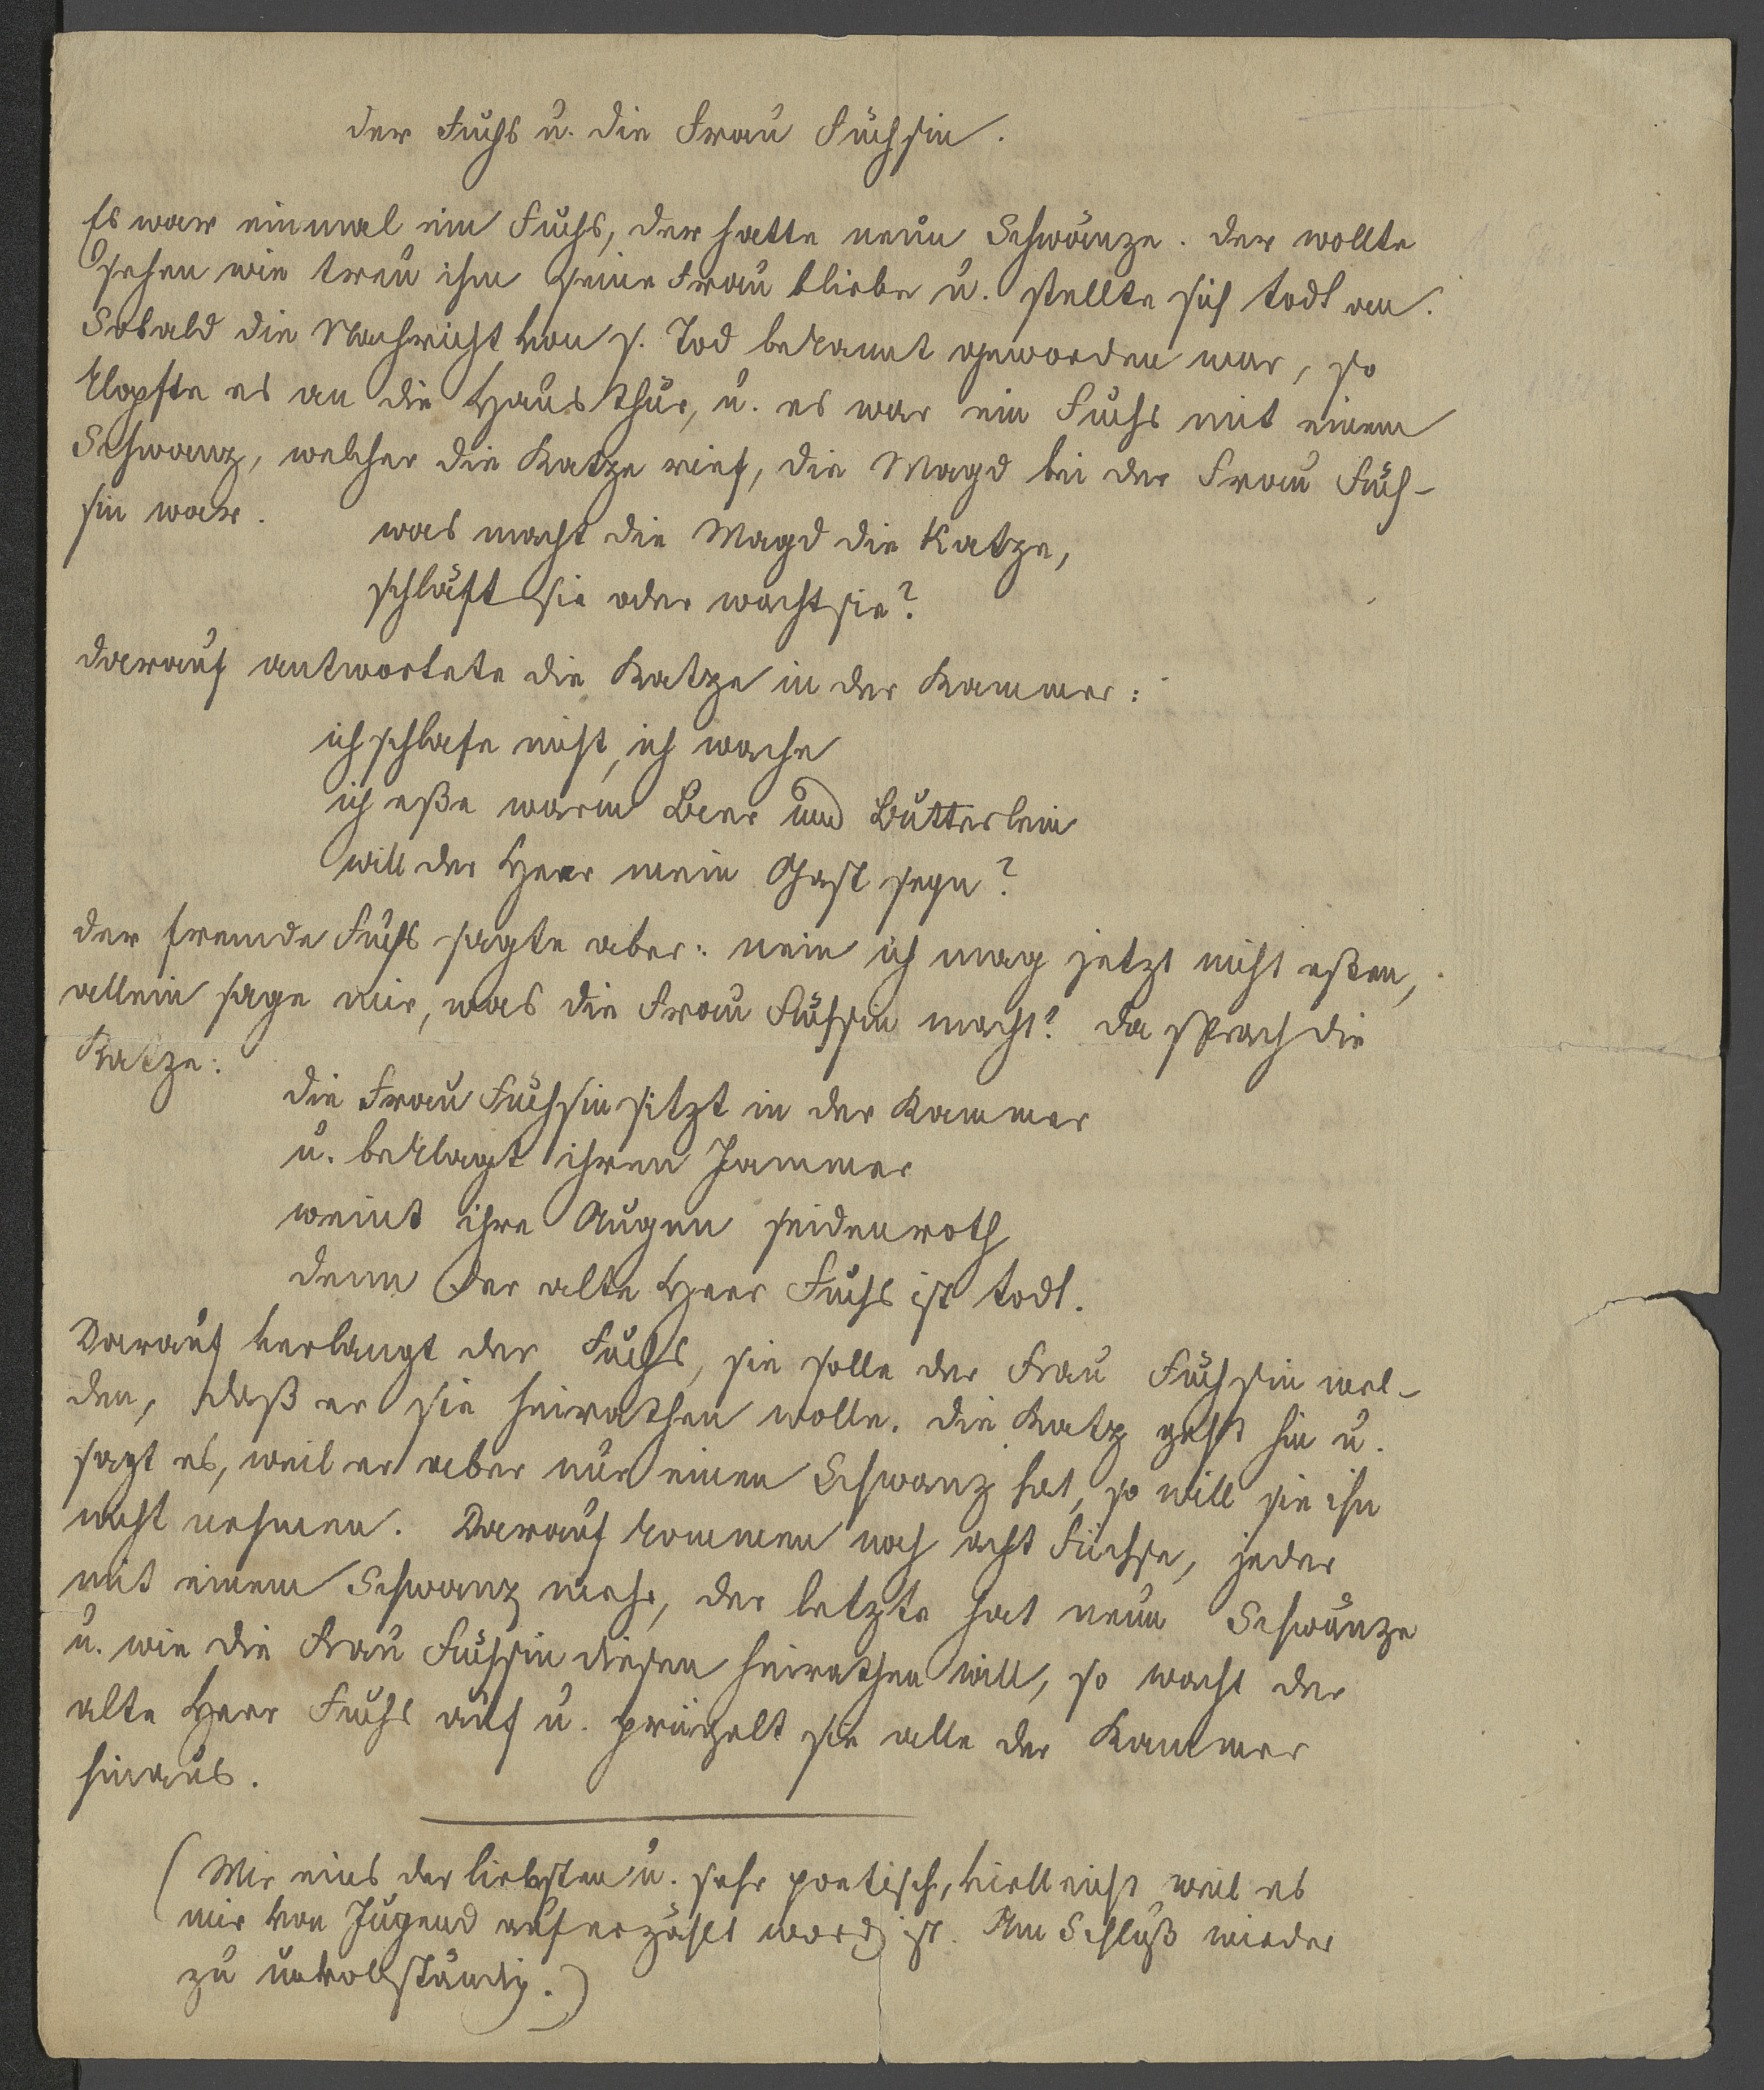 der Fuchs u. die Frau Füchsin.
Es war einmal ein Fuchs, der hatte neun Schwänze. der wollte
sehen wie treu ihm seine Frau bliebe u. stellte sich todt an.
Sobald die Nachricht von s. Tod bekannt geworden war, so
klopfte es an die Hausthür, u. es war ein Fuchs mit einem
Schwanz, welcher die Katze rief, die Magd bei der Frau Füch-
sin war.
was macht die Magd die Katze,
schläft sie oder wacht sie?
darauf antwortete die Katze in der Kammer:
ich schlafe nicht, ich wache
ich eße warm Beer und Butterlein
will der Herr mein Gast seyn?
der fremde Fuchs sagte aber: nein ich mag jetzt nicht eßen,
allein sage mir, was die Frau Füchsin macht? da sprach die
Katze:
die Frau Füchsin sitzt in der Kammer
u. beklagt ihren Jammer
weint ihre Augen seidenroth
denn der alte Herr Fuchs ist todt.
Darauf verlangt der Fuchs, sie solle der Frau Füchsin mel-
den, daß er sie heirathen wolle. die Katz geht hin u.
sagt es, weil er aber nur einen Schwanz hat, so will sie ihn
nicht nehmen. Darauf kommen noch acht Füchse, jeder
mit einem Schwanz mehr, der letzte hat neun Schwänze
u. wie die Frau Füchsin diesen heirathen will, so wacht der
alte Herr Fuchs auf u. prügelt sie alle der Kammer
hinaus.
(Mir eins der liebsten u. sehr poetisch, vielleicht weil es
mir von Jugend auf erzählt word ist. Am Schluß wieder
zu unvollständig.)